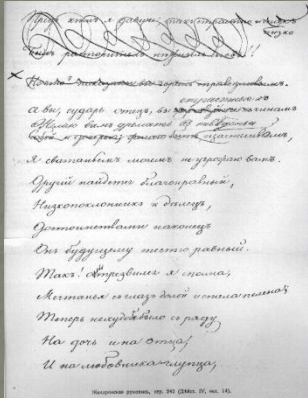 Предъ кѣмъ я
низко
Былъ расточитель нѣжныхъ словъ!
А вы, сударь отецъ, вы страстные къ чинамъ
Желаю вамъ дремать въ невѣденьи счастливомъ,
Я сватаньемъ моимъ не угрожаю вамъ.
Другой найдется благонравный,
Низкопоклонникъ и делецъ,
Достоинствами наконецъ
Онъ будущему тестю равный.
Такъ! Отрезвился я сполна,
Мечтанья съ глазъ долой и спала пелена;
Теперь не худо бъ было съ ряду
На дочь и на отца,
И на любовника глупца,
Жандровская рукопись, стр. 242 (Дѣйст. IV, явл. 14).